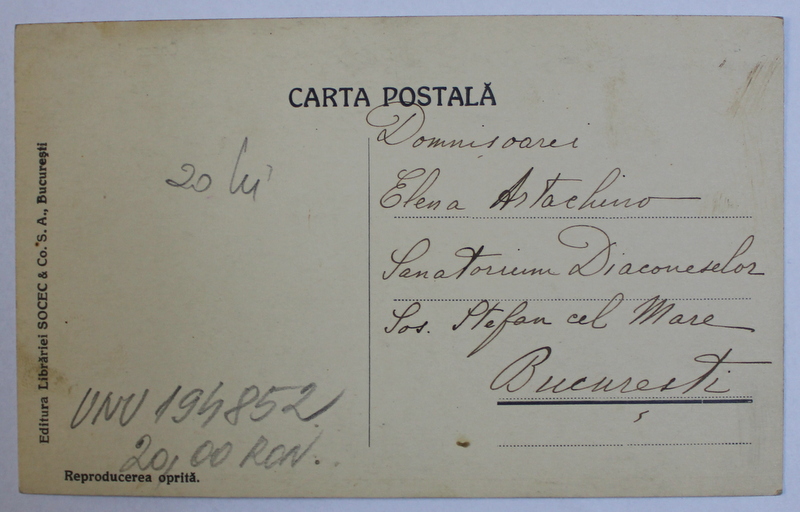 CARTA POSTALĂ
Domnișoarei
Elena Astachino
Sanatorium Diaconeselor
Sos. Stefan cel Mare
București
20 lei
UNU 194852
20,00 RON.
Editura Librăriei SOCEC & Co. S. A., București
Reproducerea oprită.